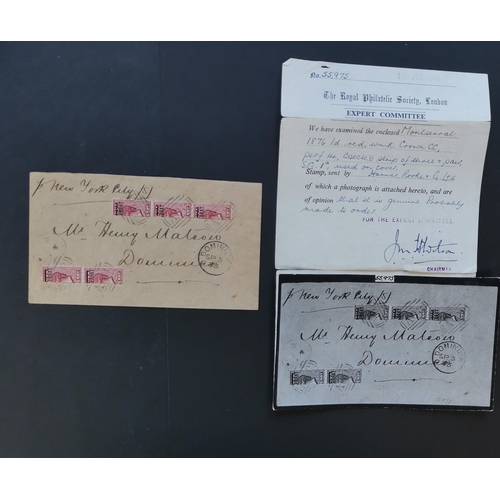 p New York City (S)
Mr Henry
Dominica
DOMINICA
No. 55,975
The Royal Philatelic Society, London
EXPERT COMMITTEE
We have examined the enclosed Montserrat
1876 1d. red, wmk Crown CC,
perf 14, bisected strip of three & pair
used on cover
Stamp, sent by
of which a photograph is attached hereto, and are
of opinion that it is genuine Probably
made to order.
FOR THE EXPERT COMMITTEE
CHAIRMAN
55,975
p New York City (S)
Mr Henry
Dominica
DOMINICA